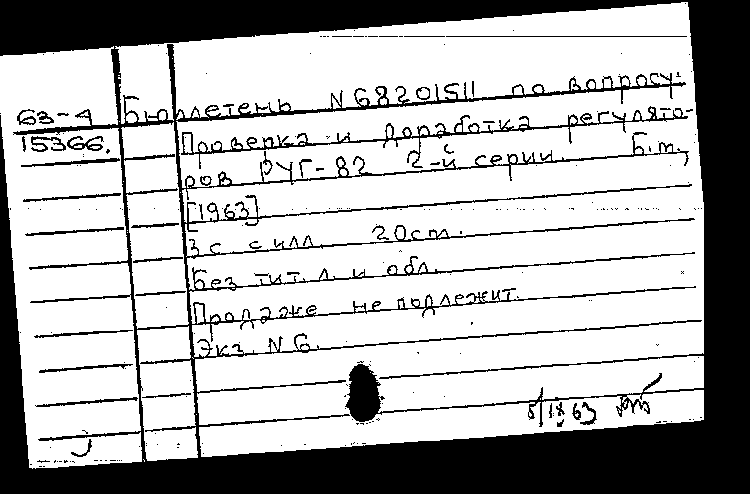 63-4 Бюллетень N 68201511 по вопросу:
15366. Проверка и доработка регулято-
ров РУГ-82 2-й серии. Б.м.,
[1963]
3 с. с илл. 20 см.
Без тит. л. и обл.
Продаже не подлежит.
Экз. N 6.
63